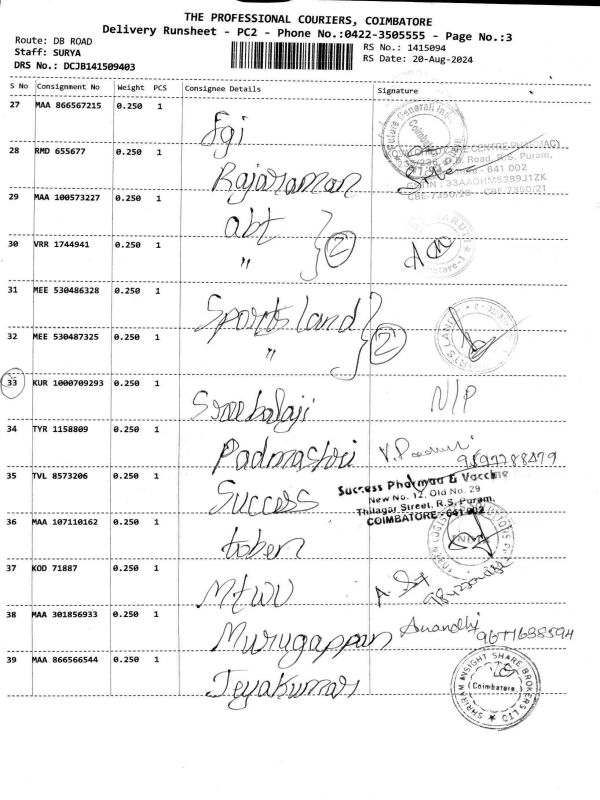 THE PROFESSIONAL COURIERS, COIMBATORE
Delivery Runsheet - PC2 - Phone No.:0422-3505555 - Page No.:3
Route: DB ROAD
RS No.: 1415094
Staff: SURYA
RS Date: 20-Aug-2024
DRS No.: DCJB141509403
S No Consignment No Weight PCS Consignee Details Signature
27 MAA 866567215 0.250 1 Fgi
28 RMD 655677 0.250 1 Rajaraman
R.S. Puram,
641 002
33AAOHM5389J1ZK
29 MAA 100573227 0.250 1 abt
30 VRR 1744941 0.250 1 " 2
31 MEE 530486328 0.250 1 Sports land
32 MEE 530487325 0.250 1 " 2
33 KUR 1000709293 0.250 1 Sree balaji N/P
34 TYR 1158809 0.250 1 Padmashri
35 TVL 8573206 0.250 1 Success
Success Pharmaa & Vaccine
New No. 12, Old No. 29
Thilagar Street, R.S. Puram,
COIMBATORE - 641 002
36 MAA 107110162 0.250 1 toben
37 KOD 71887 0.250 1
38 MAA 301856933 0.250 1 Murugappan Anandhi
39 MAA 866566544 0.250 1 Jeyakumar
SHRIRAM INSIGHT SHARE BROKERS LTD
(Coimbatore)